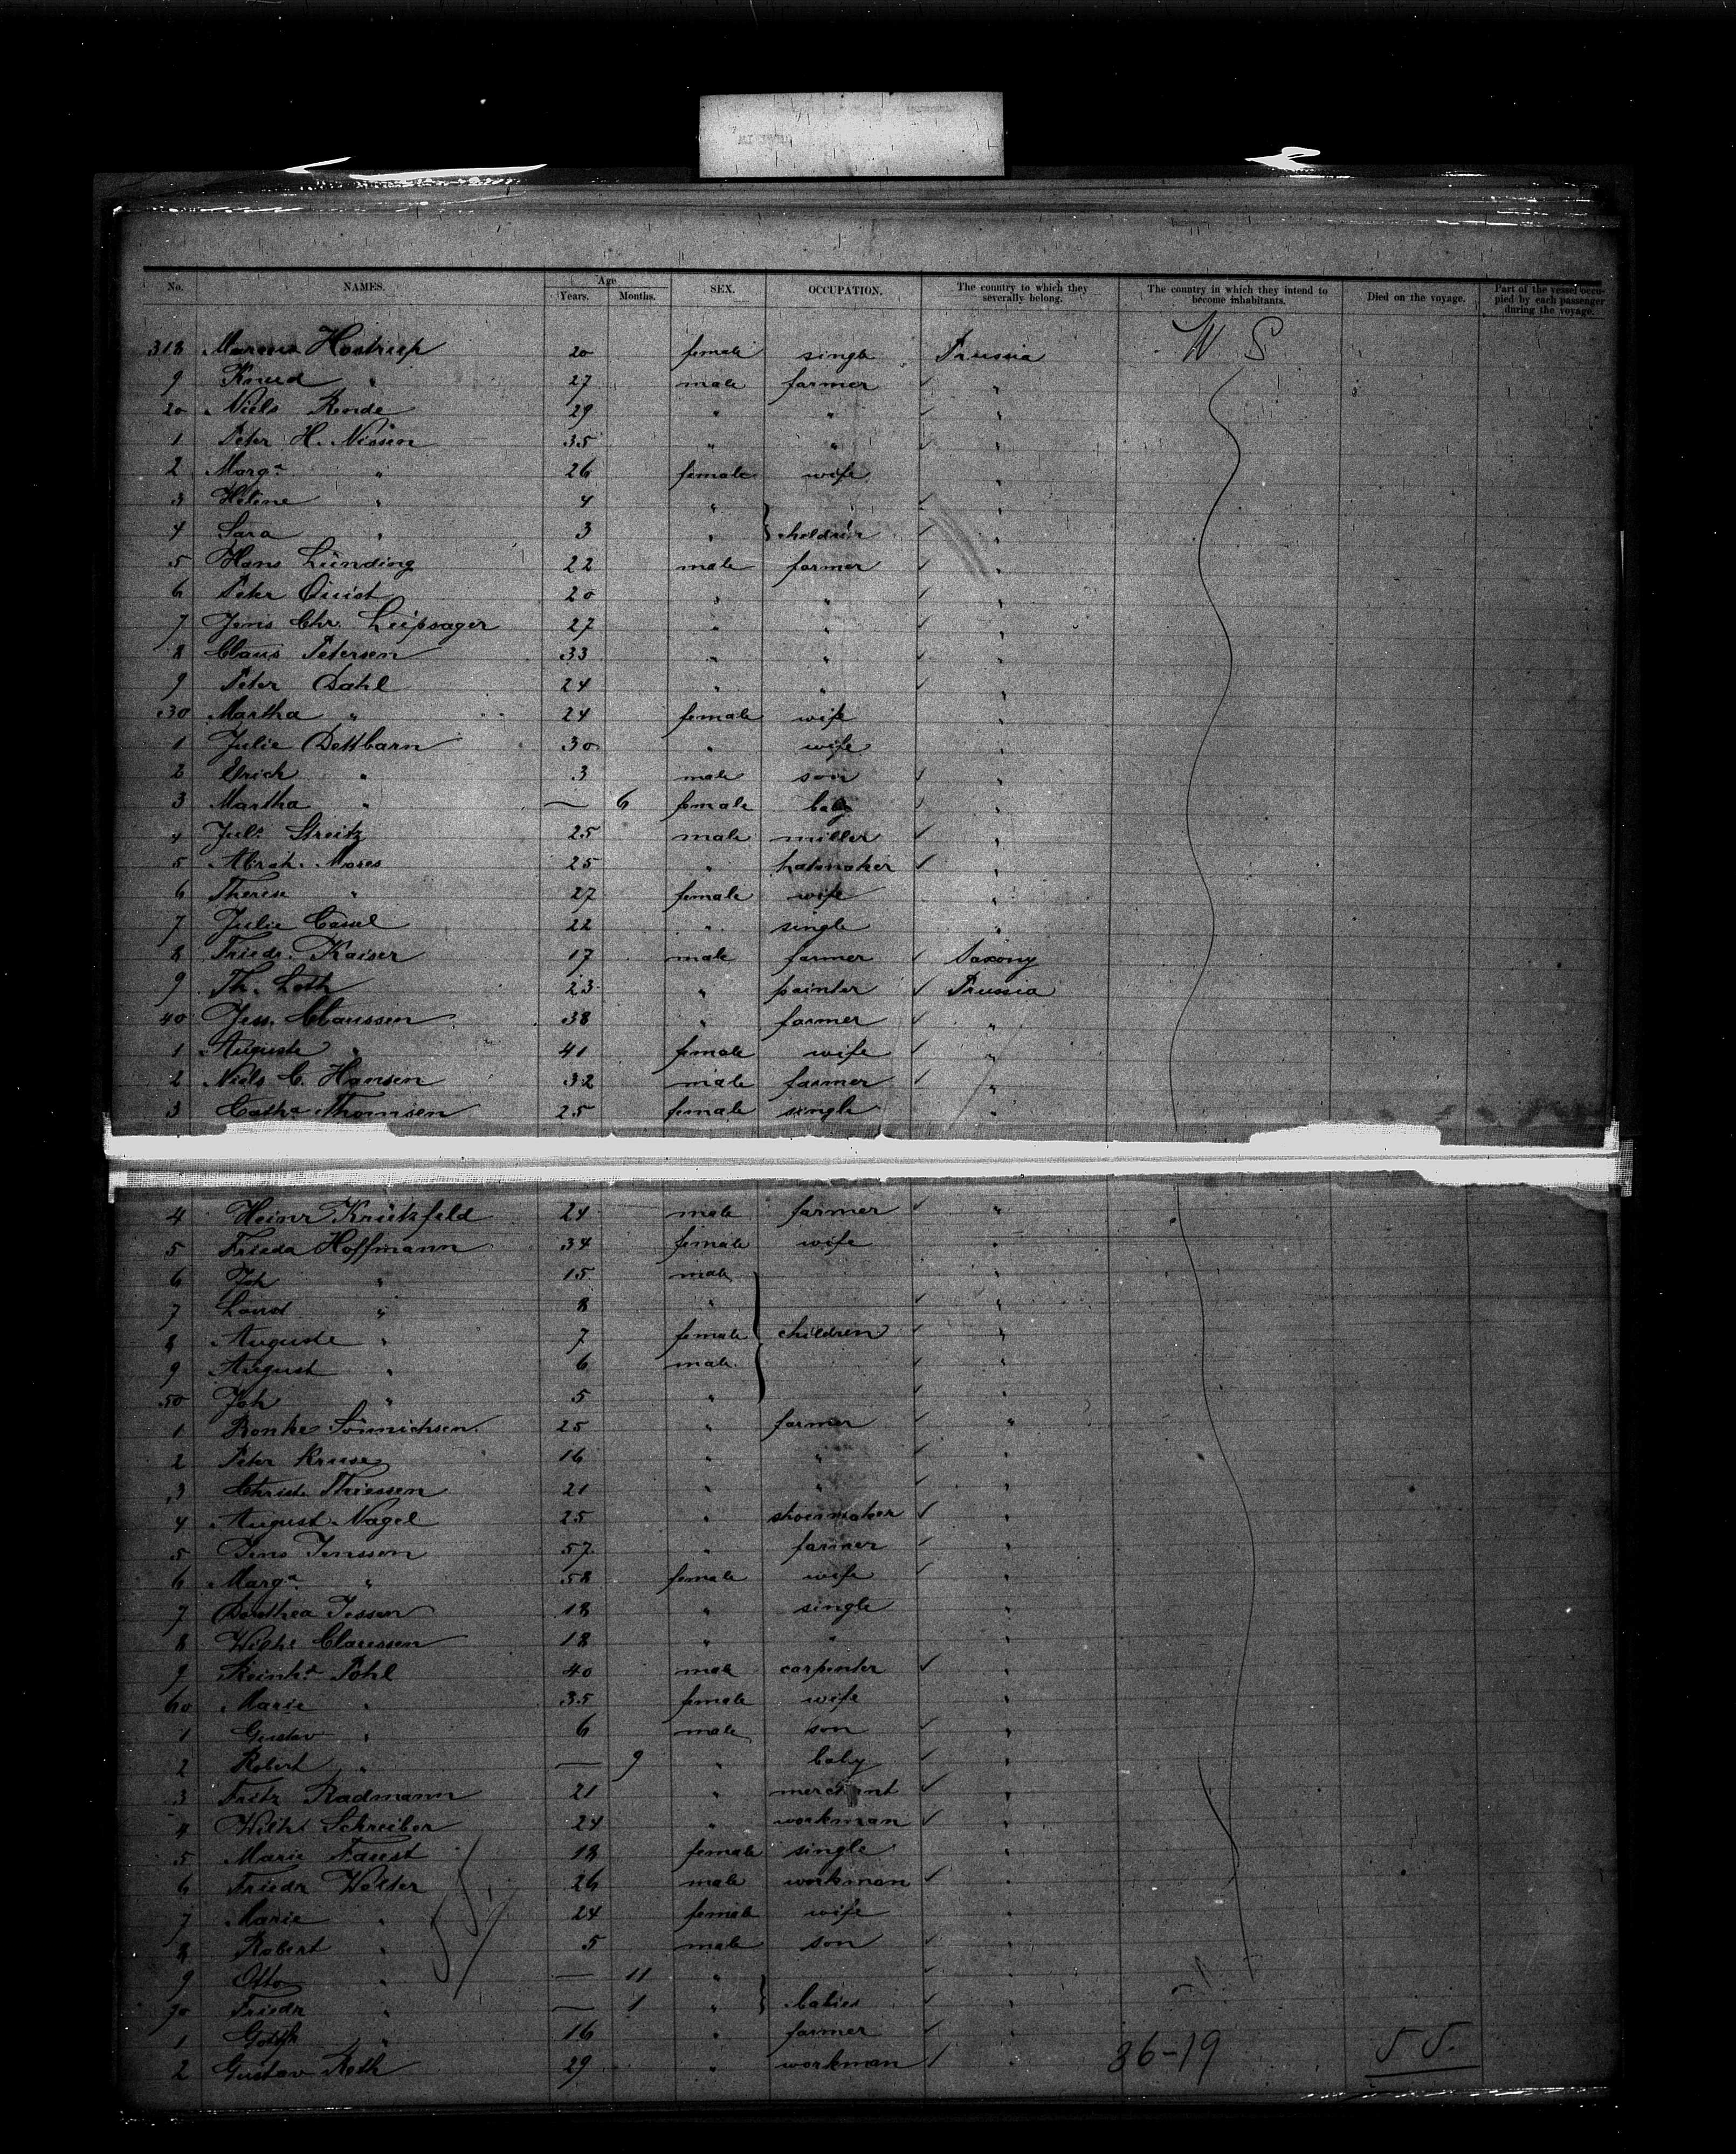 No. NAMES. Age Years. Months. SEX. OCCUPATION. The country to which they severally belong. The country in which they intend to become inhabitants. Died on the voyage. Part of the vessel occupied by each passenger during the voyage.
318 Hostrup 20 female single Prussia
9 Knud " 27 male farmer "
20 Niels Rende 29 " " "
1 Peter H. Nissen 35 " " "
2 Marga " 26 female wife "
3 Helene " 4 " "
4 Sara " 3 " children "
5 Hans Lünding 22 male farmer "
6 Peter Quist 20 " " "
7 Jens Chr. Leipsager 27 " " "
8 Claus Petersen 33 " " "
9 Peter Dahl 24 " " "
30 Martha " 24 female wife "
1 Julie Dettbarn 30 " wife "
2 Erich " 3 male son "
3 Martha " — 6 female baby "
4 Juls Streitz 25 male miller "
5 Abrah. Moses 25 " hatmaker "
6 Therese " 27 female wife "
7 Julie Cassel 22 " single "
8 Friedr. Kaiser 17 male farmer Saxony
9 Th. Loth 23 " painter Prussia
40 Jess. Claussen 38 " farmer "
1 Auguste " 41 female wife "
2 Niels C. Hansen 32 male farmer "
3 Catha Thomsen 25 female single "
4 Heinr Krützfeld 24 male farmer "
5 Frieda Hoffmann 34 female wife "
6 Joh " 15 male "
7 " 8 " "
8 Auguste " 7 female children "
9 August " 6 male "
50 Joh " 5 "
1 Bonke Sönnichsen 25 " farmer "
2 Peter Kruse 16 " " "
3 Christ. Thiessen 21 " " "
4 August Nagel 25 " shoemaker "
5 Jens Jenssen 57 " farmer "
6 Marga " 58 female wife "
7 Dorothea Jessen 18 " single "
8 Wilhe Claussen 18 " " "
9 Reinhd Pohl 40 male carpenter "
60 Marie " 35 female wife "
1 Gustav " 6 male son "
2 Robert " — 9 " baby "
3 Fritz Radmann 21 " merchant "
4 Wilh. Schreiber 24 " workman "
5 Marie Faust 18 female single "
6 Friedr Welter 26 male workman "
7 Marie " 24 female wife "
8 Robert " 5 male son "
9 Otto " — 11 " "
70 Friedr " — 1 " babies "
1 " 16 " farmer "
2 Gustav Roth 29 " workman "
36-19